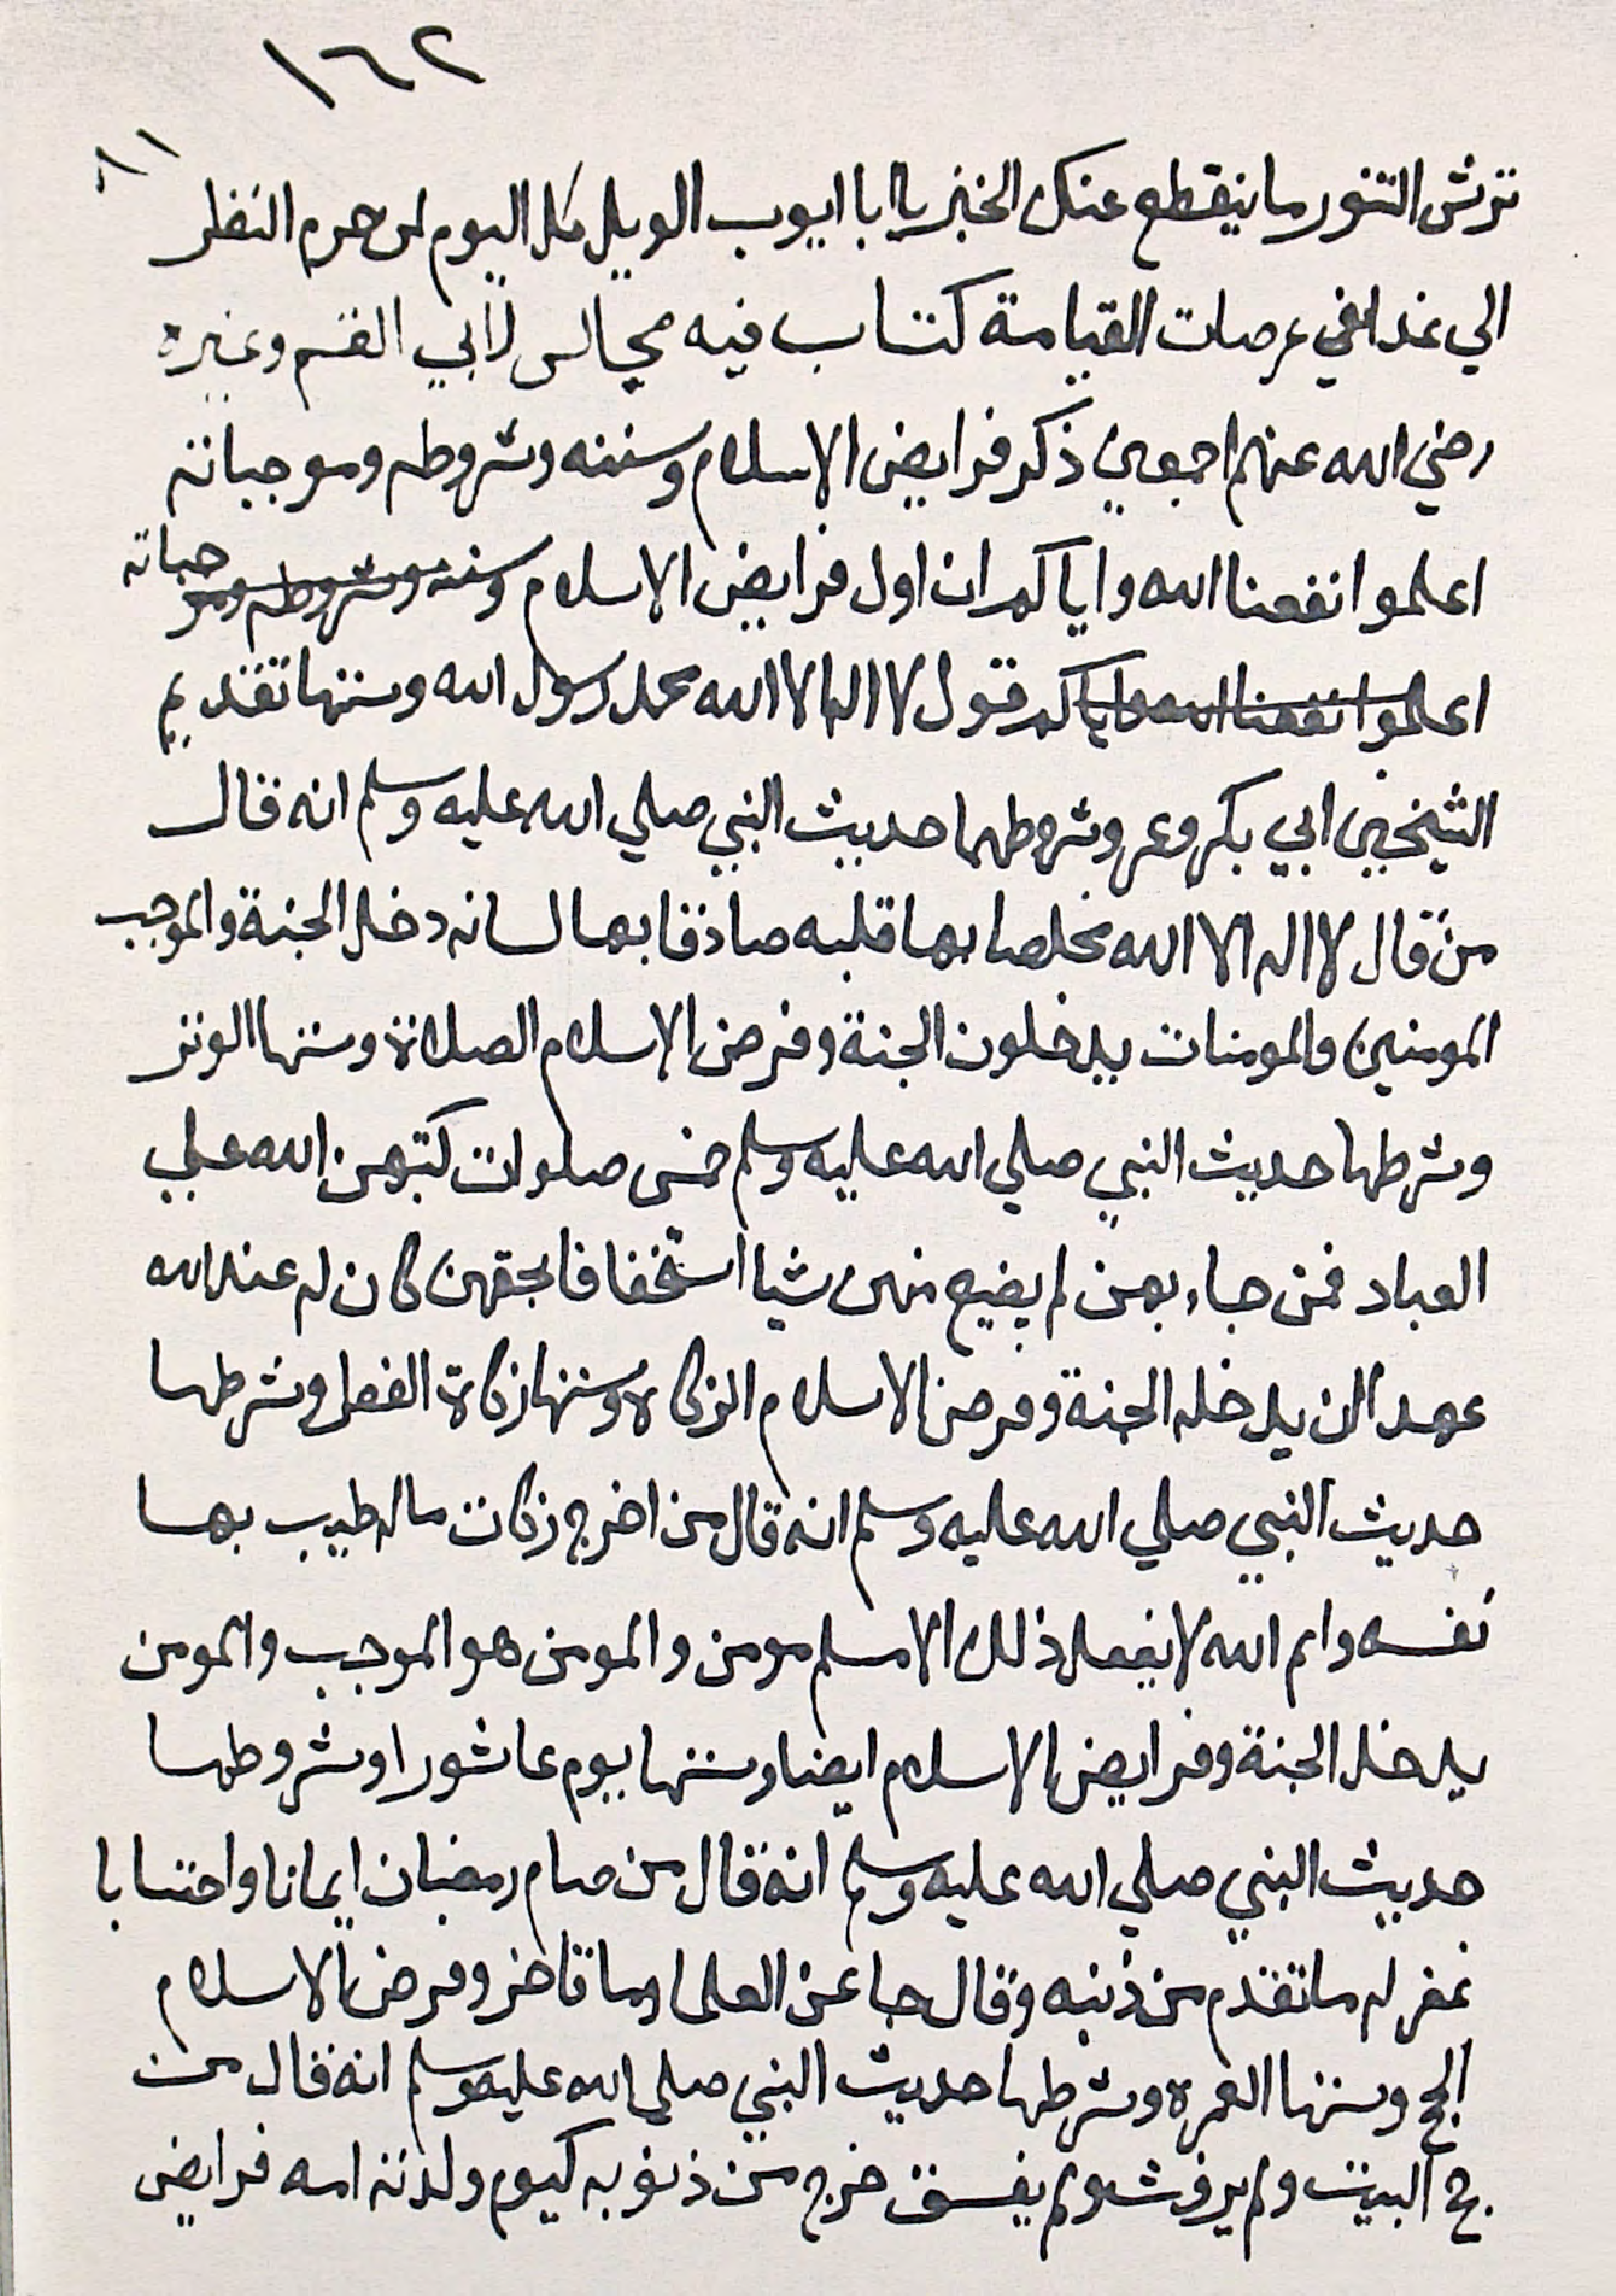 ١٦٢
ترش التنور ما ينقطع عنك الخبز يا ابا ايوب الويل كل اليوم لمن حرم النظر
الي غدا في عرصات القيامة كتاب فيه مجالس لابي القسم وغيره
رضي الله عنهم اجمعين ذكر فرايض الاسلام وسننه وشروطه وموجباته
اعلموا نفعنا الله واياكم ان اول فرايض الاسلام وسننه وشروطه وموجباته
اعلموا نفعنا الله واياكم قول لا اله الا الله محمد رسول الله وسنتها تقديم
الشيخين ابي بكر وعمر وشروطهما حديث النبي صلي الله عليه وسلم انه قال
من قال لا اله الا الله مخلصا بها قلبه صادقا بها لسانه دخل الجنة والموجب
المومنين والمومنات يدخلون الجنة وفرض الاسلام الصلاة وسنتها الوتر
وشرطها حديث النبي صلي الله عليه وسلم خمس صلوات كتبهن الله علي
العباد فمن جاء بهن لم يضيع منهن شيا استخفافا بحقهن كان له عند الله
عهدا ان يدخله الجنة وفرض الاسلام الزكاة وسنتها زكاة الفطر وشرطها
حديث النبي صلي الله عليه وسلم انه قال من اخرج زكات ماله طيب بها
نفسه وايم الله لا يفعل ذلك الا مسلم مومن والمومن هو الموجب والمومن
يدخل الجنة وفرايض الاسلام ايضا وسنتها يوم عاشورا وشروطها
حديث النبي صلي الله عليه وسلم انه قال من صام رمضان ايمانا واحتسابا
غفر له ما تقدم من ذنبه وقال جا عن العلما وما تاخر وفرض الاسلام
الحج وسنتها العمره وشرطها حديث النبي صلي الله عليه وسلم انه قال من
حج البيت ولم يرفث ولم يفسق خرج من ذنوبه كيوم ولدته امه فرايض